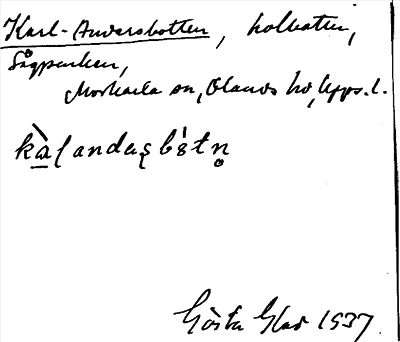 Karl-Andersbotten, holbotten,
Sågpenken,
Morkarla sn, Olands hd, Upps. l.
kàlandaʂbɵ́tn̥
Gösta Glad 1937.